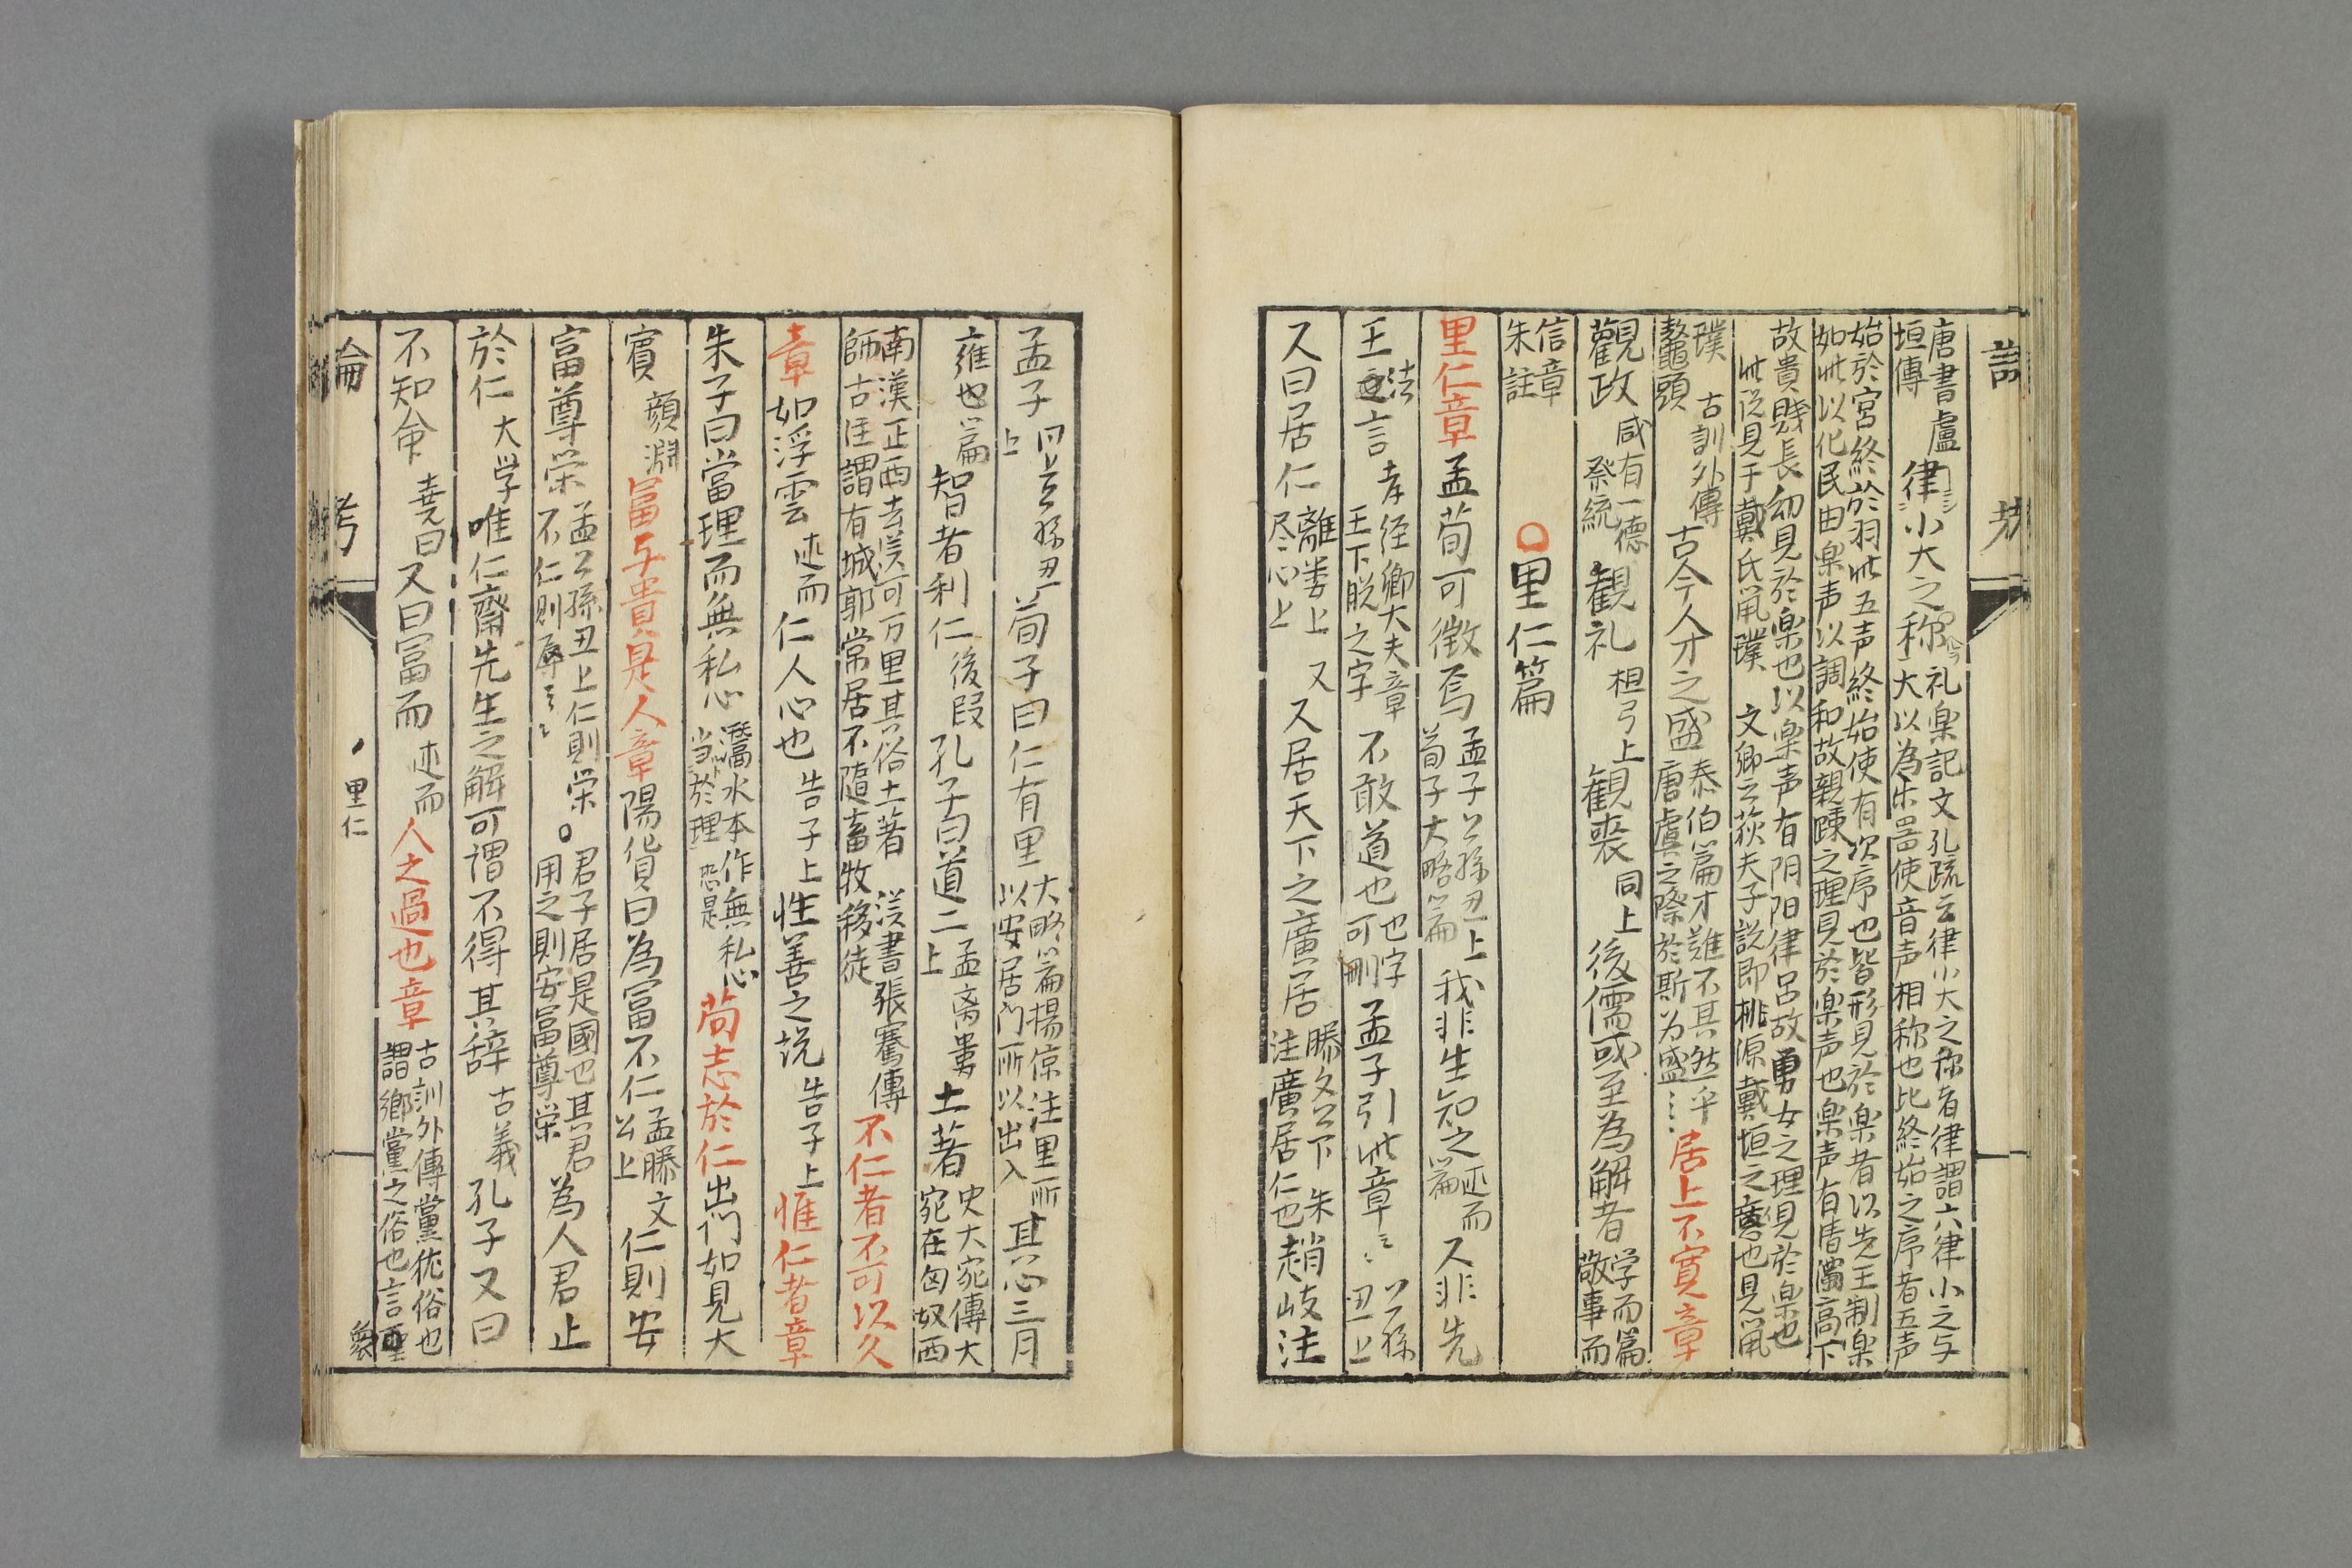 唐書盧
垣傳
律〻小大之称
礼楽記文孔疏云律小大之称者律謂六律小之与
大以為楽器使音声相称也比終始之序者五声
始於宮終於羽此五声終始使有次序也皆形見於楽者以先王制楽
如此以化民由楽声以調和故親踈之理見於楽声也楽声有清濁高下
故貴賎長幼見於楽也以楽声有阴阳律呂故男女之理見於楽也
此說見于戴氏鼠璞
文卿之荻夫子説即桃源戴垣之也見鼠
璞
鼇頭
古訓外傳
古今人才之盛
泰伯篇才難不其然乎
唐虞之際於斯为盛〻〻
居上不寛章
觀政
咸有一徳
祭統
観礼
檀弓上
観喪
同上
後儒或至為解者
学而篇
敬事而
信章
朱註
○里仁篇
里仁章
孟荀可徴焉
孟子公孫丑上
荀子大略篇
我非生知之
述而
篇
又非先
王法言
孝経卿大夫章
王下脱之字
不敢道也
也字
可刪
孟子引此章〻〻
公孫
丑上
又曰居仁
離婁上 又
尽心上
又居天下之廣居
滕文公下 朱
注廣居仁也
趙岐注
孟子
公孫丑
上
荀子曰仁有里
大略篇楊倞注里所
以安居門所以出入
其心三月
雍也篇
智者利仁
後段
孔子曰道二
孟离婁
上
土著
史大宛傳大
宛在匈奴西
南漢正西去漢可万里其俗土著
漢書張騫傳
師古注謂有城郭常居不隨畜牧移徒
不仁者不可以久
章
如浮雲
述而
仁人心也
告子上
性善之説
告子上
惟仁者章
朱子曰當理而無私心
水本作無私心
当於理
恐是
苟志於仁
出門如見大
賓
顔淵
富与貴是人章
陽貨曰為富不仁
孟滕文
公上
仁則安
富尊栄
孟公孫丑上仁則栄
不仁則辱〻〻
○君子居是國也其君
用之則安富尊栄
為人君止
於仁
大学
唯仁齋先生之解可謂不得其辞
古義
孔子又曰
不知命
尭曰
又曰冨而
述而
人之過也章
古訓外傳黨犹俗也
謂鄉黨之俗也言聖
論 考
里仁